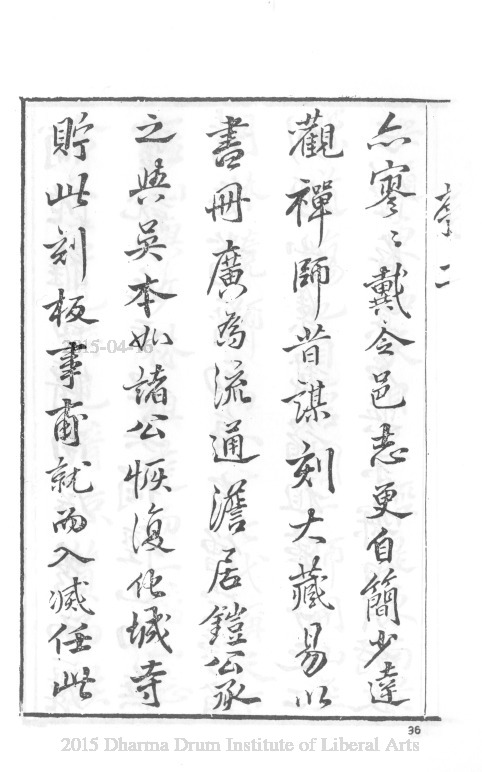 序二
亦寥〻戴令邑志更自簡少達
觀禪師昔謀刻大藏易以
書冊廣為流通澹居鎧公承
之與吳本如諸公恢復化城寺
貯此刻板事甫就而入滅任此
36
2015-04-16
2015 Dharma Drum Institute of Liberal Arts